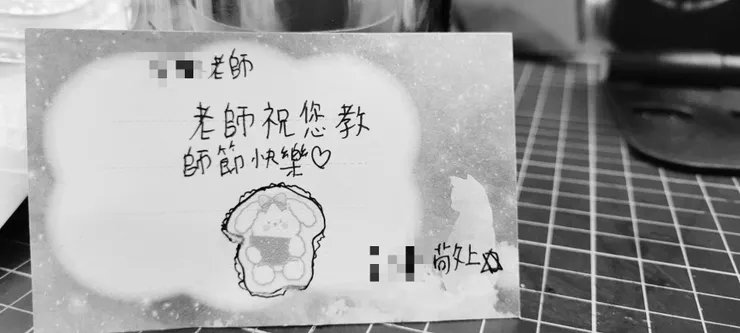 老師
老師祝您教
師節快樂♡
敬上☆